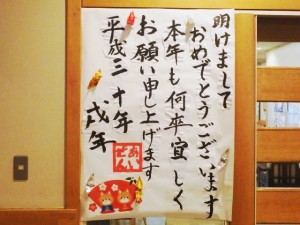 明けまして
おめでとうございます
本年も何卒宜しく
お願い申し上げます
平成三十年
戌年